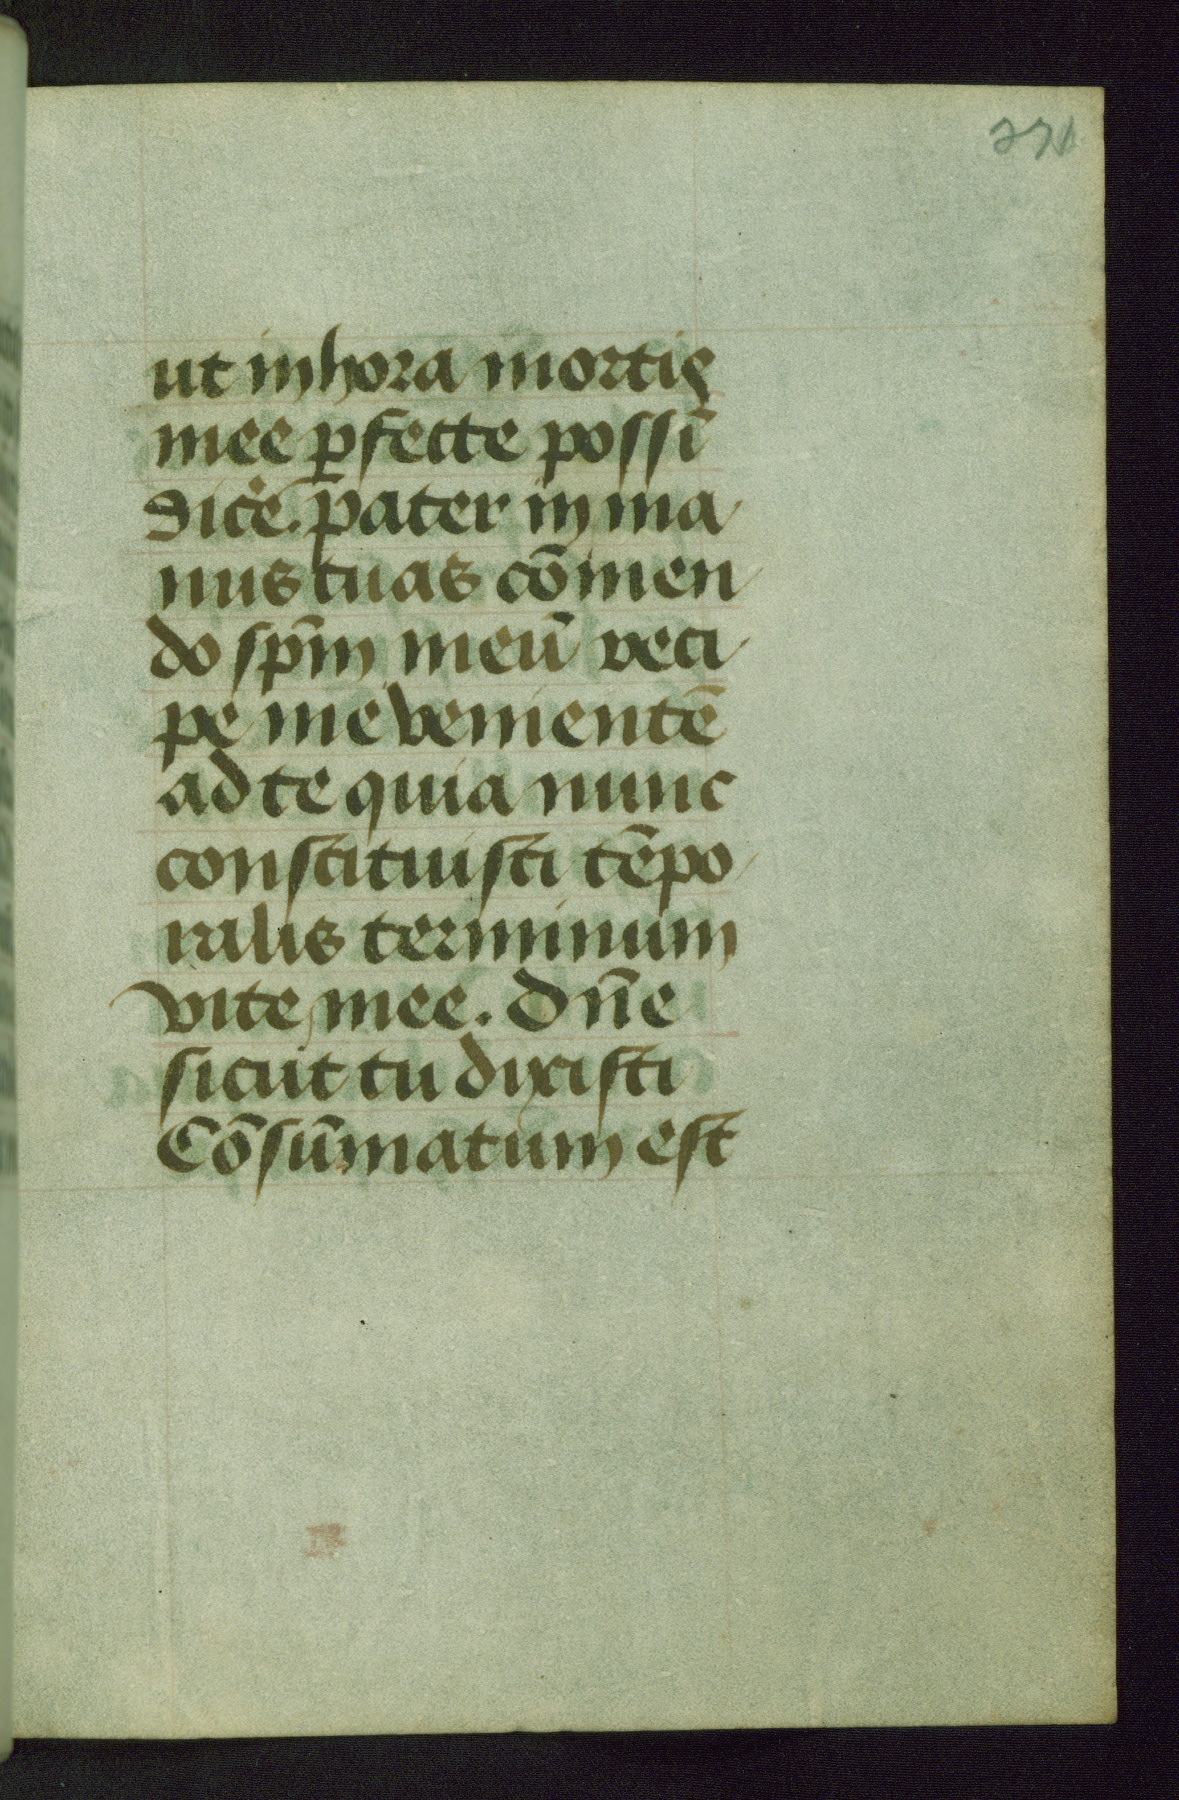 ut in hora mortis
mee ꝑfecte possū
dicē. pater in ma
nus tuas cōmen
do sp̄m meū reci
pe me venientē
ad te quia nunc
constituisti tēpo
ralis terminum
vite mee. Dn̄e
sicut tu dixisti
Cōsūmatum est